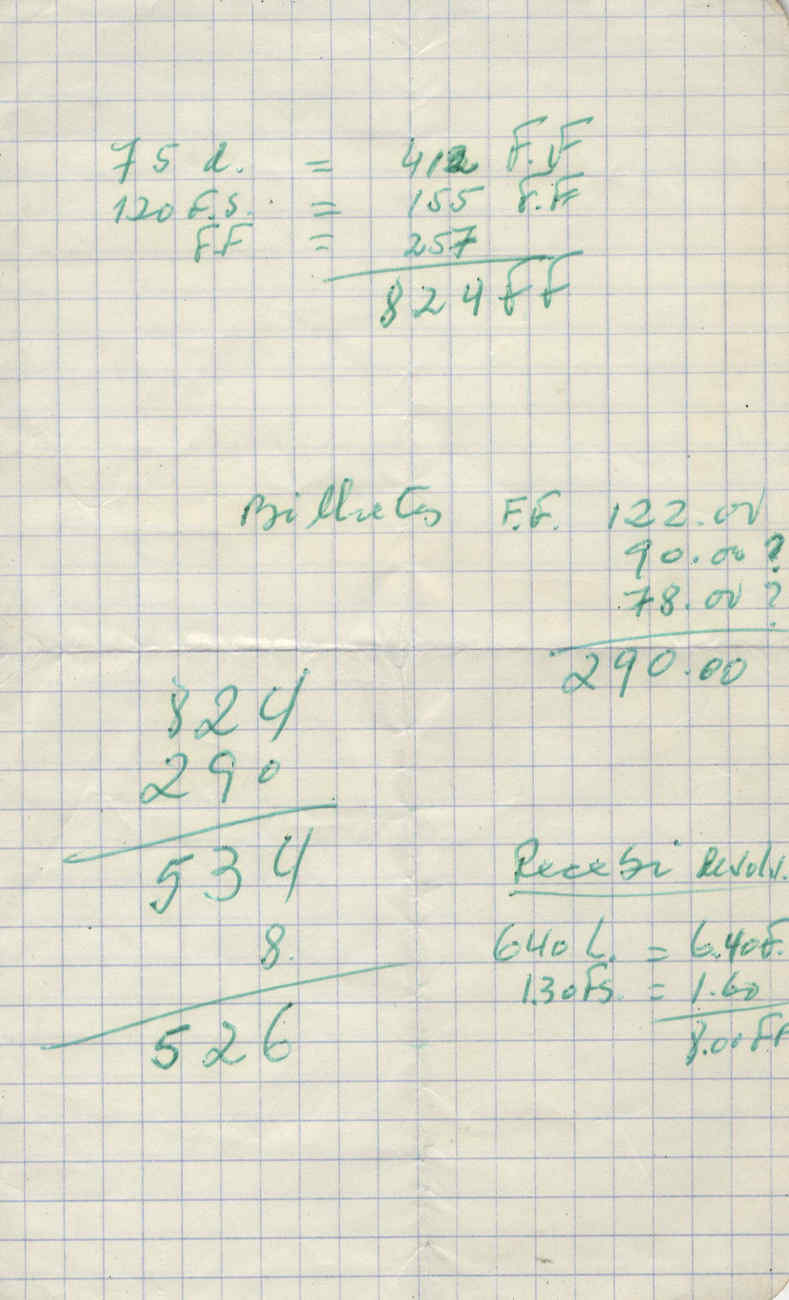 75 d. = 412 F.F
120 F.S. = 155 F.F
FF = 257
824 FF
Bilhetes F.F. 122.00
90.00 ?
78.00 ?
290.00
824
290
534
8.
526
Recebi Devolv.
640 L. = 6.40 F.
1.30 FS. = 1.60
8.00 FF